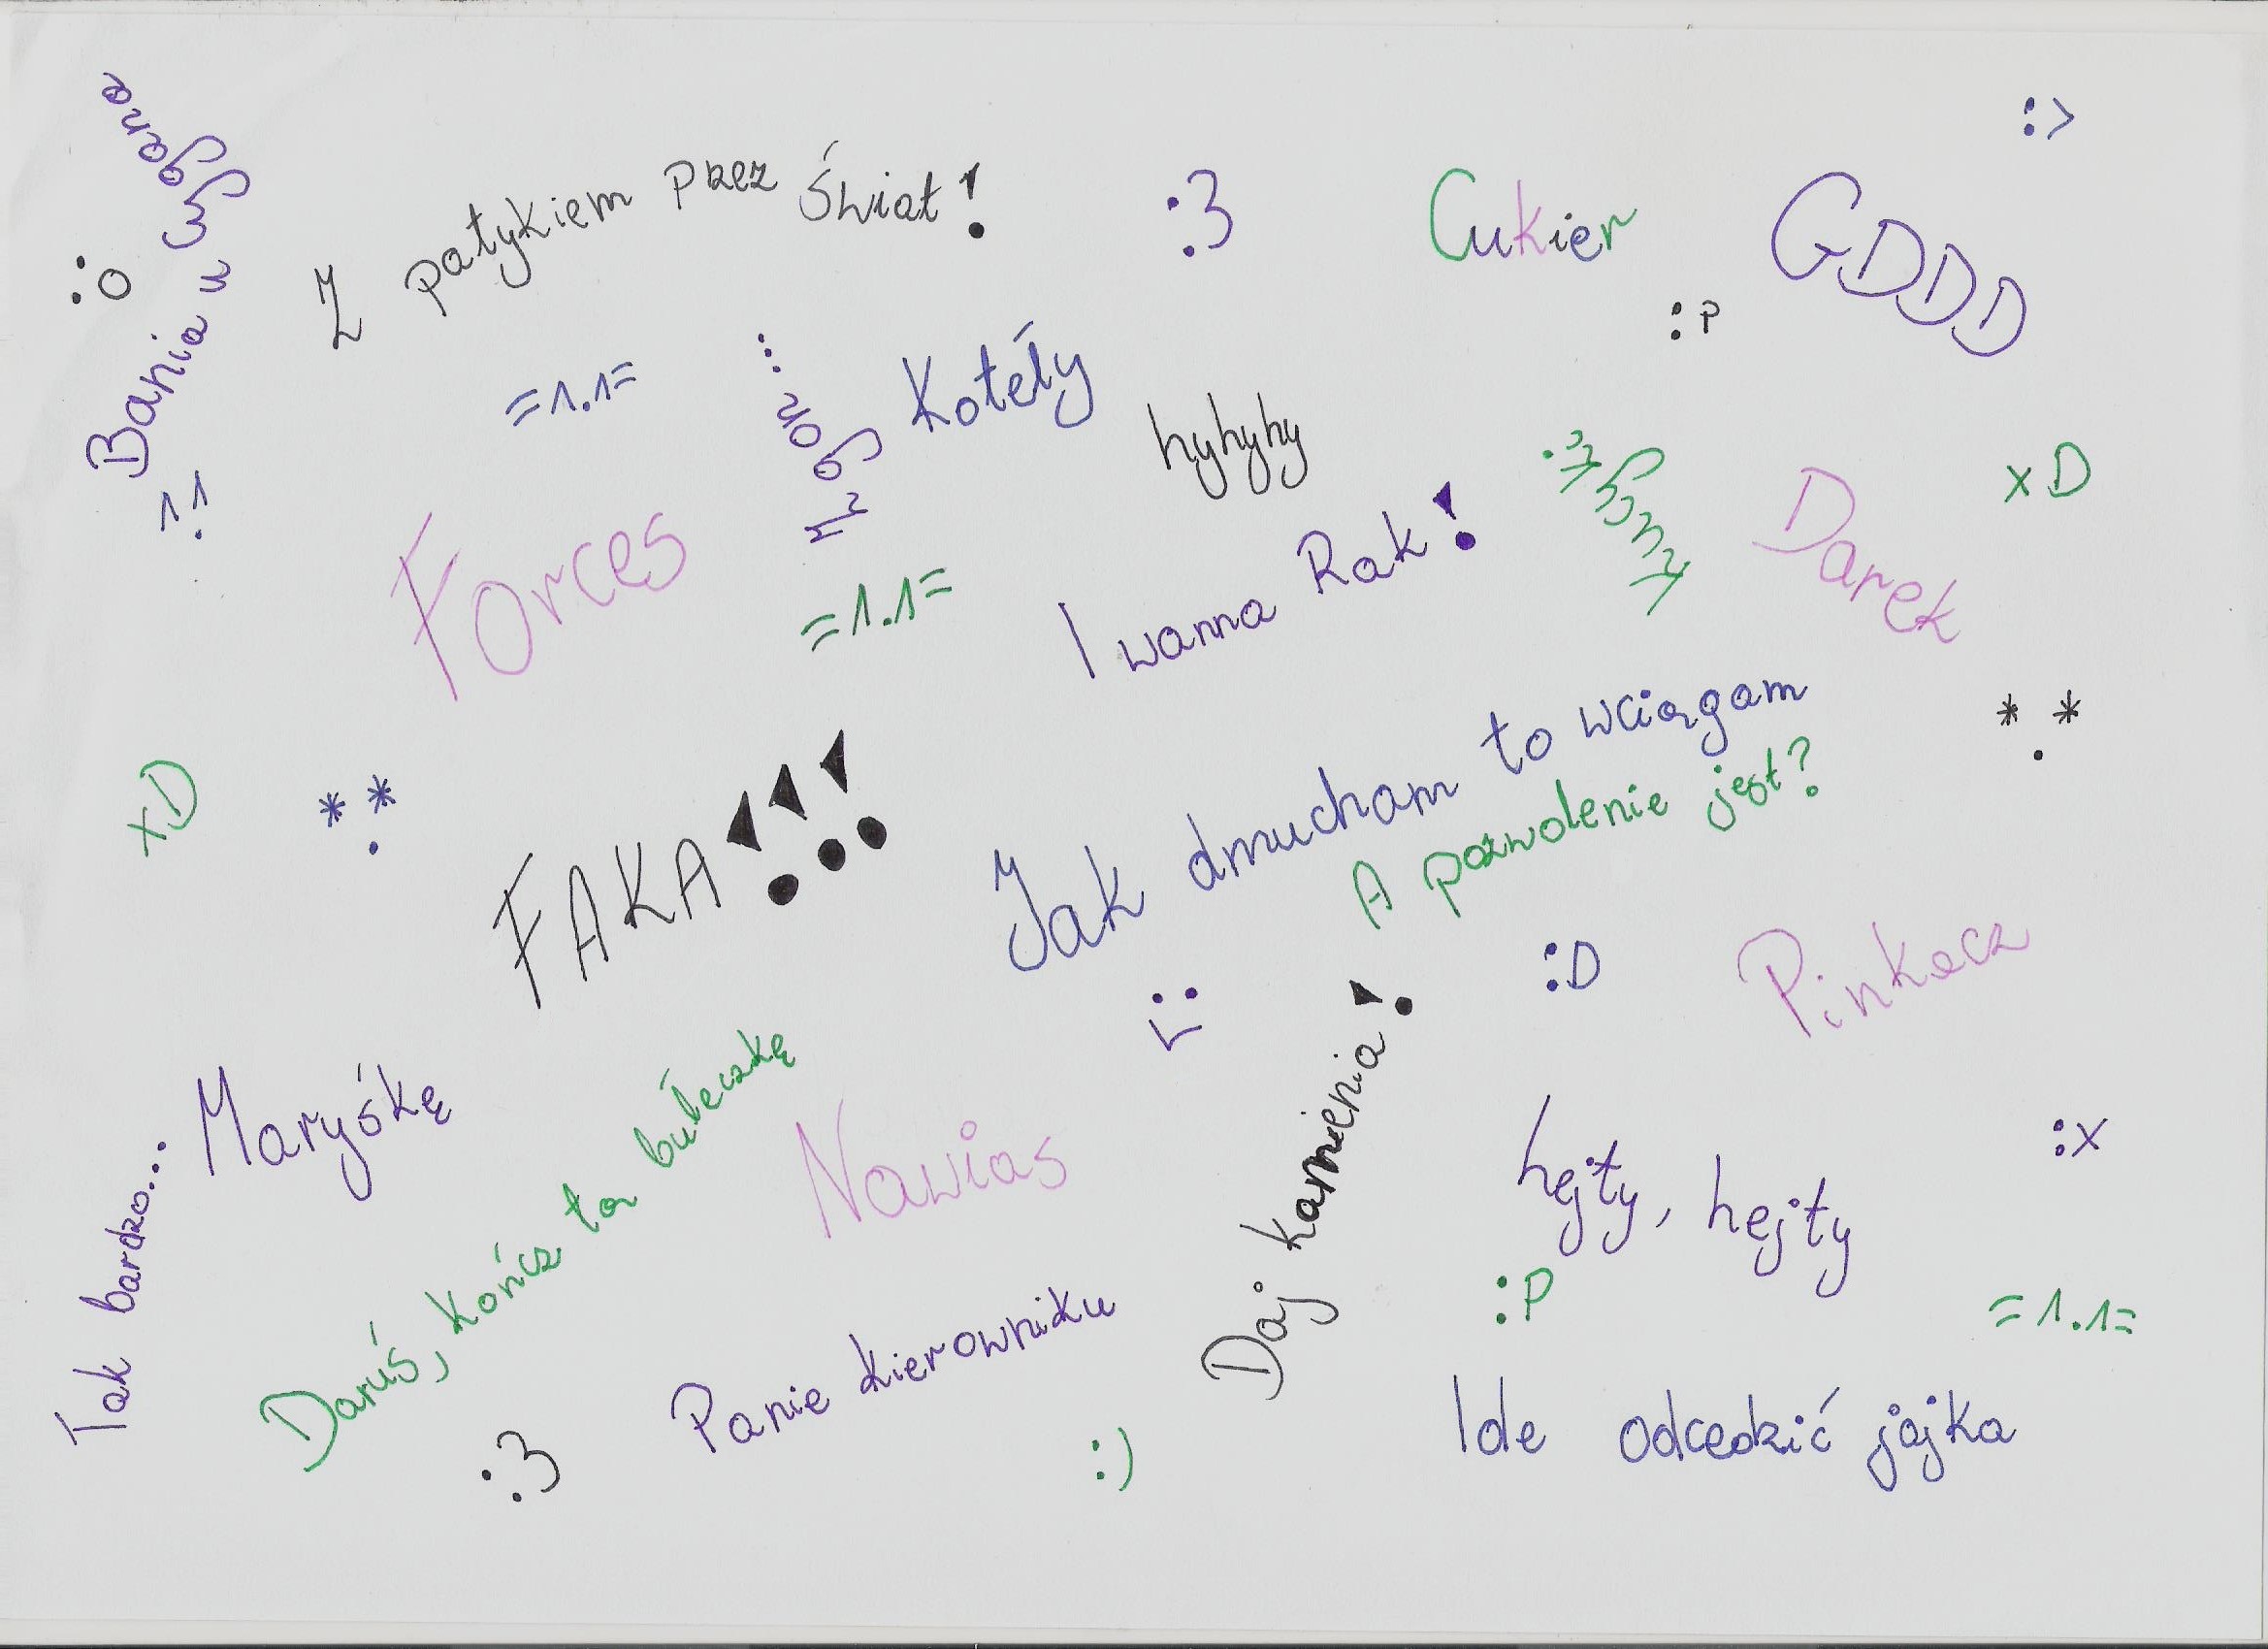 :>
Bania u Cygana
:O
Z patykiem przez Świat!
:3
Cukier
GDDD
:P
=1.1=
Kotely
hyhyhy
1.1
I wanna Rak!
Darek
xD
Forces
=1.1=
Jak dmucham to wciągam
A pozwolenie jest?
*.*
xD
*.*
FAKA!!!
:D
Pinkacz
Tak bardzo...
Maryśkę
Daruś, kończ tą bułeczkę
Nawias
Daj kamienia!
hejty, hejty
:x
:P
=1.1=
Panie kierowniku
:3
:)
Ide odcedzić jajka